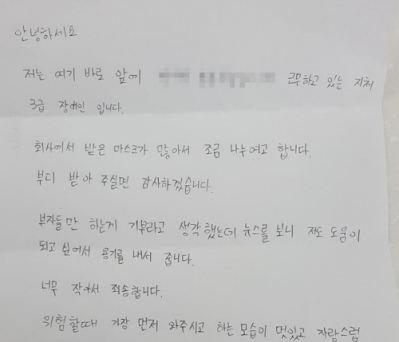 안녕하세요
저는 여기 바로 앞에 근무하고 있는 지체
3급 장애인 입니다.
회사에서 받은 마스크가 많아서 조금 나누려고 합니다.
부디 받아 주실면 감사하겠습니다.
부자들만 하는게 기부라고 생각했는데 뉴스를 보니 저도 도움이
되고 싶어서 용기를 내서 줍니다.
너무 작아서 죄송합니다.
위험할때 가장 먼저 와주시고 하는 모습이 멋있고 자랑스럼